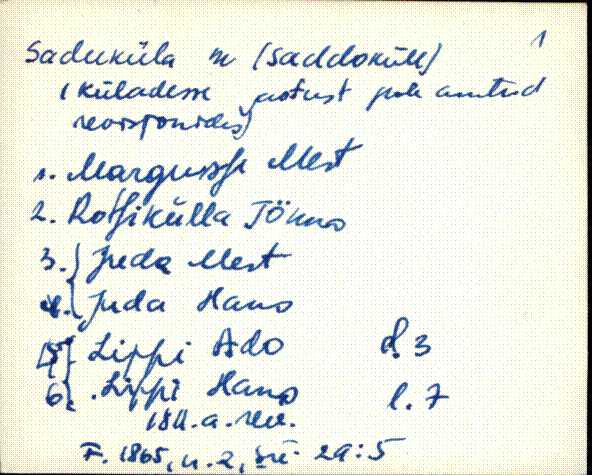 1
Saduküla m (Saddoküll)
(küladesse jaotust pole antud
revisjonides)
1. Margusse Mert
2. Rotsikülla Jönno
3. { Juda Mert
4. { Juda Hans
5 { Lippi Ado l. 3
6 { Lippi Hans l. 7
1811.a. rev.
F. 1865, n. 2, sü. 29:5